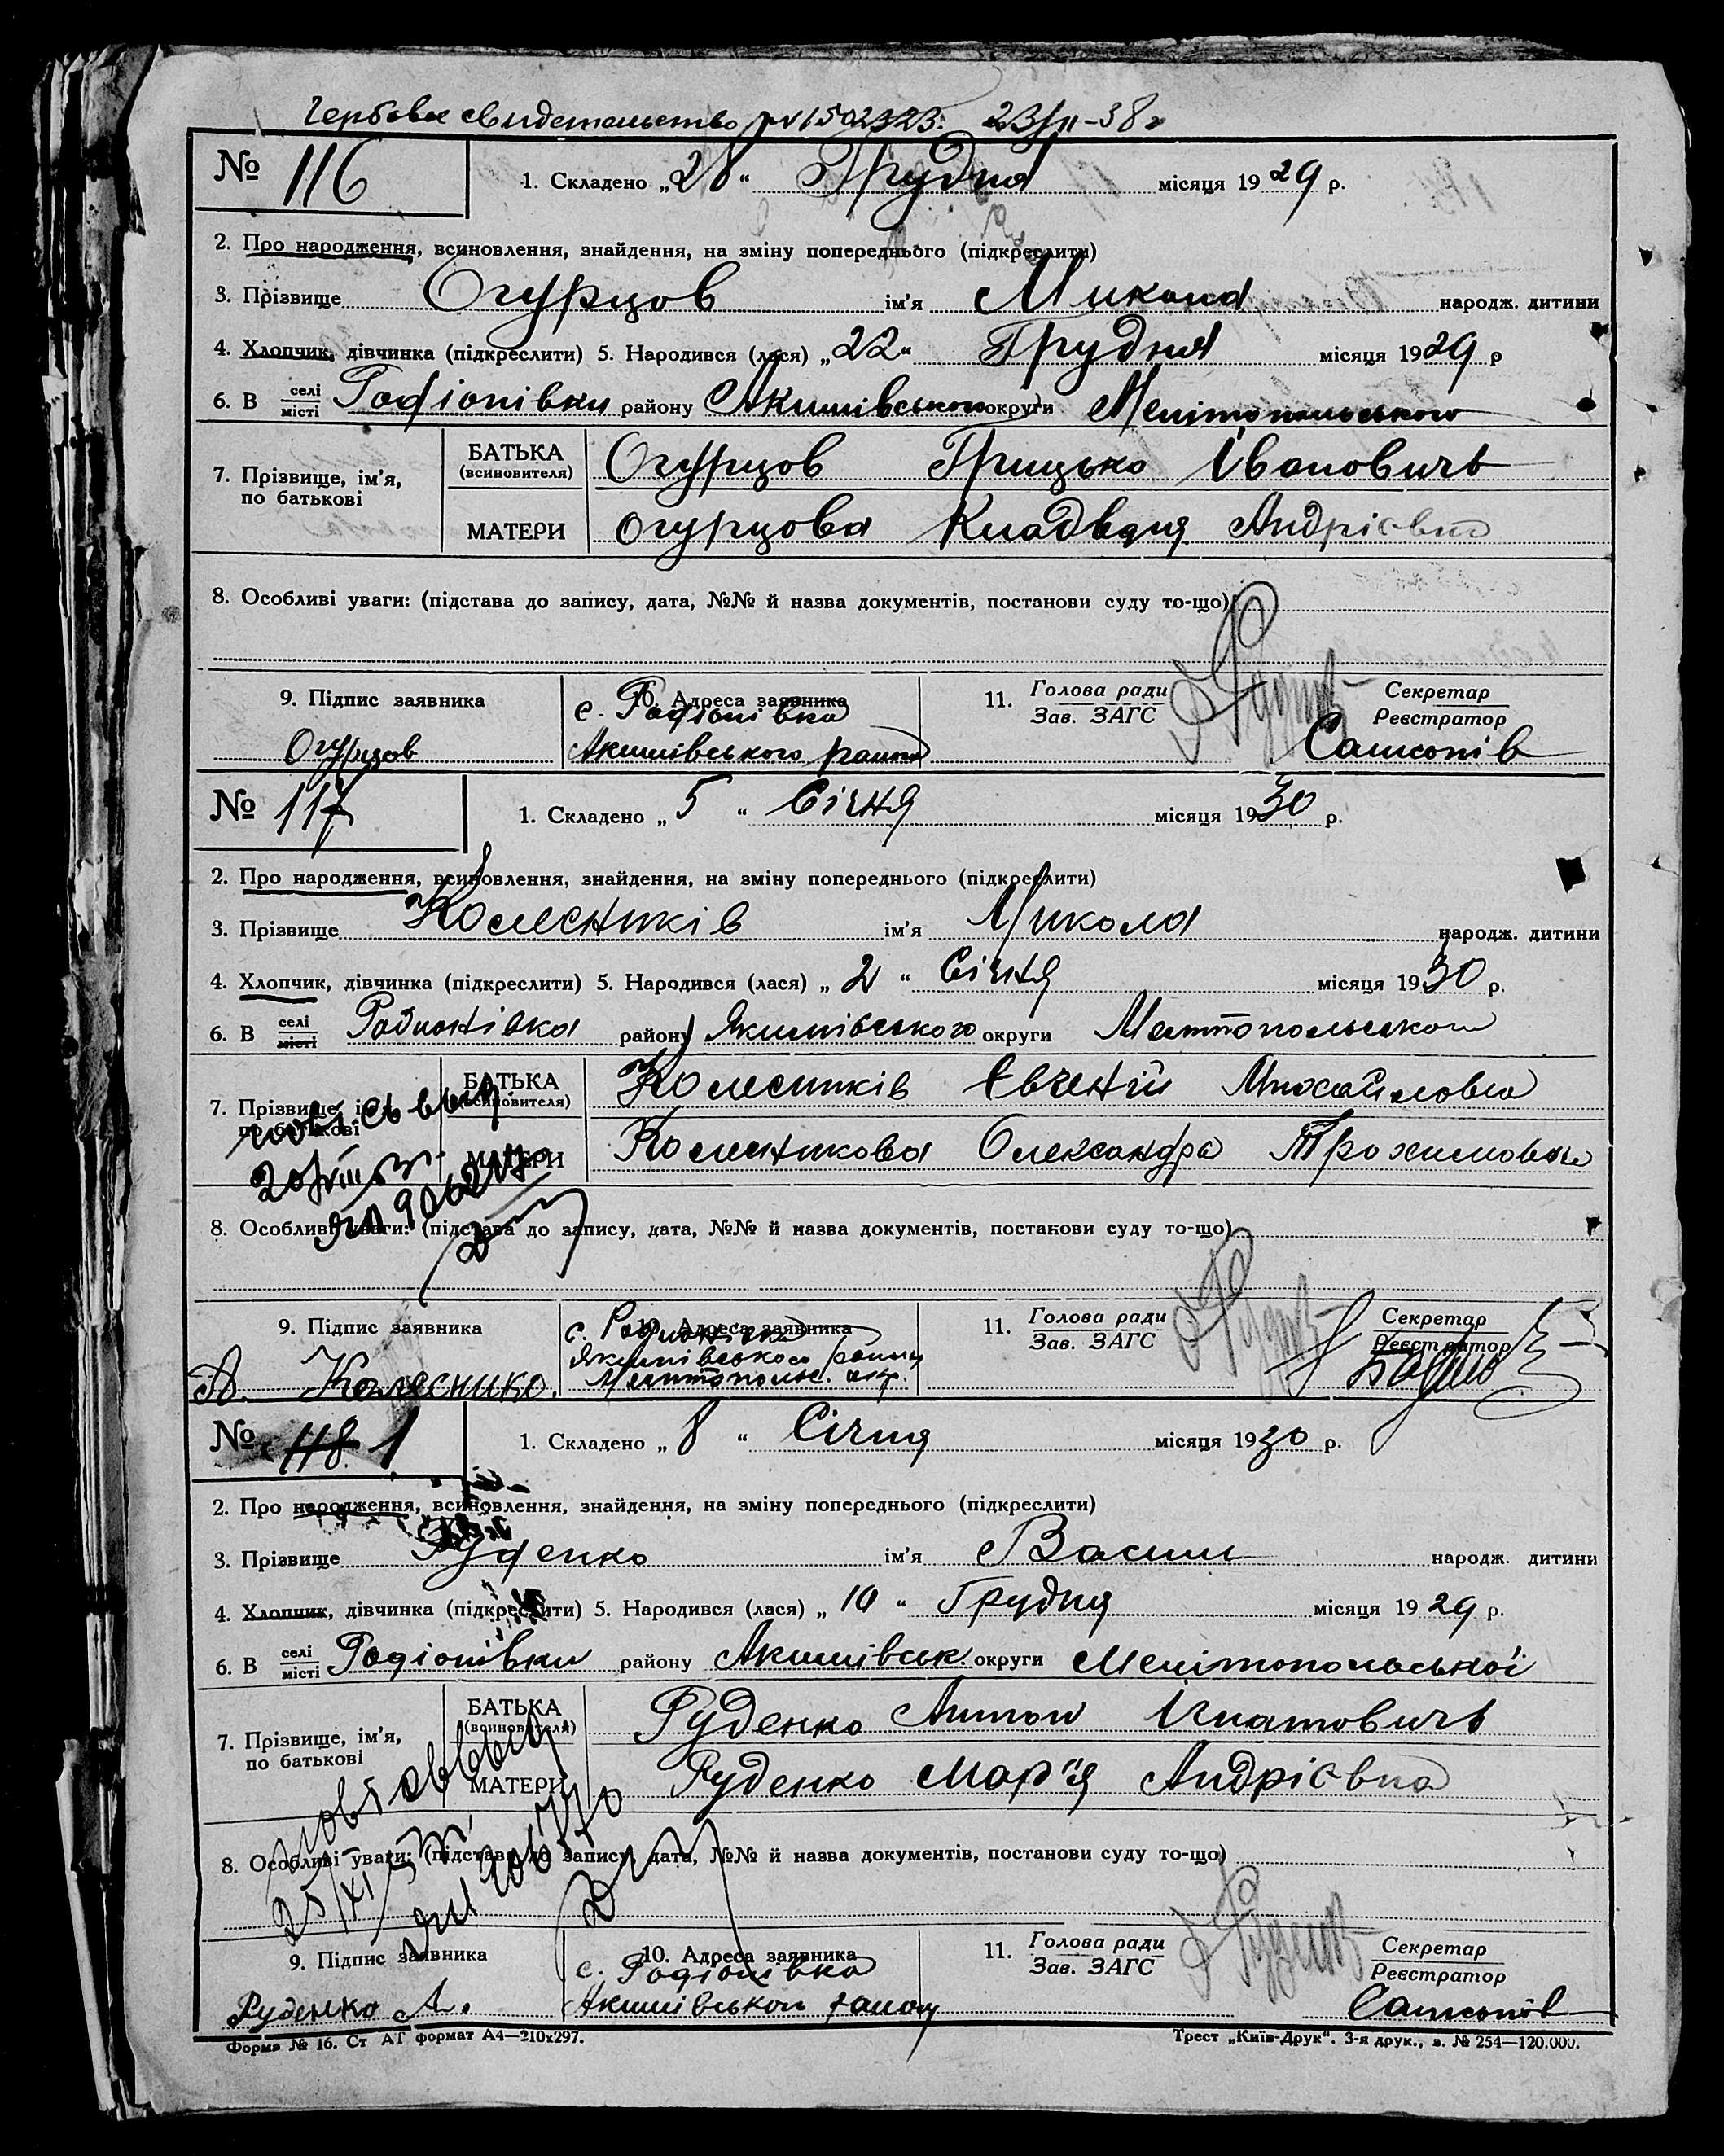 Гербовое свидетельство № 1502323. 23/II-38г
№ 116 1. Складено „28“ Грудня місяця 1929 р.
2. Про народження, всиновлення, знайдення, на зміну попереднього (підкреслити)
3. Прізвище Огурцов ім'я Микола народж. дитини
4. Хлопчик, дівчинка (підкреслити) 5. Народився (лася) „22“ Грудня місяця 1929 р
6. В селі місті Родіонівки району Акимівського округи Мелітопольського
7. Прізвище, ім'я, по батькові
БАТЬКА (всиновителя) Огурцов Грицько Івановичъ
МАТЕРИ Огурцова Клавдия Андрієвна
8. Особливі уваги: (підстава до запису, дата, №№ й назва документів, постанови суду то-що)
9. Підпис заявника 10. Адреса заявника 11. Голова ради Зав. ЗАГС Секретар Реєстратор
Огурцов с. Родіонівка Самсонів
Акимівського району
№ 117 1. Складено „5“ Січня місяця 1930 р.
2. Про народження, всиновлення, знайдення, на зміну попереднього (підкреслити)
3. Прізвище Колесників ім'я Микола народж. дитини
4. Хлопчик, дівчинка (підкреслити) 5. Народився (лася) „2“ Січня місяця 1930 р.
6. В селі місті Родионівка району Якимівського округи Мелітопольського
7. Прізвище, ім'я, по батькові
БАТЬКА (всиновителя) Колесників Евгений Михайловиа
МАТЕРИ Колесникова Олександра Трохимовна
8. Особливі уваги: (підстава до запису, дата, №№ й назва документів, постанови суду то-що)
9. Підпис заявника 10. Адреса заявника 11. Голова ради Зав. ЗАГС Секретар Реєстратор
с. Родионівка
Якимівського району
А. Колеснико. Мелітопольс. окр.
№ 118. 1 1. Складено „8“ Січня місяця 1930 р.
2. Про народження, всиновлення, знайдення, на зміну попереднього (підкреслити)
3. Прізвище Руденко ім'я Васили народж. дитини
4. Хлопчик, дівчинка (підкреслити) 5. Народився (лася) „10“ Грудня місяця 1929 р.
6. В селі місті Родіонівки району Акимівськ. округи Мелітопольської
7. Прізвище, ім'я, по батькові
БАТЬКА (всиновителя) Руденко Антон Ігнатовичъ
МАТЕРИ Руденко Мар'я Андрієвна
8. Особливі уваги: (підстава до запису, дата, №№ й назва документів, постанови суду то-що)
9. Підпис заявника 10. Адреса заявника 11. Голова ради Зав. ЗАГС Секретар Реєстратор
с. Родіонівка
Руденко А. Акимівського району Самсонів
Форма № 16. Ст АТ формат А4—210х297. Трест „Київ-Друк“. 3-я друк., з. № 254—120.000.